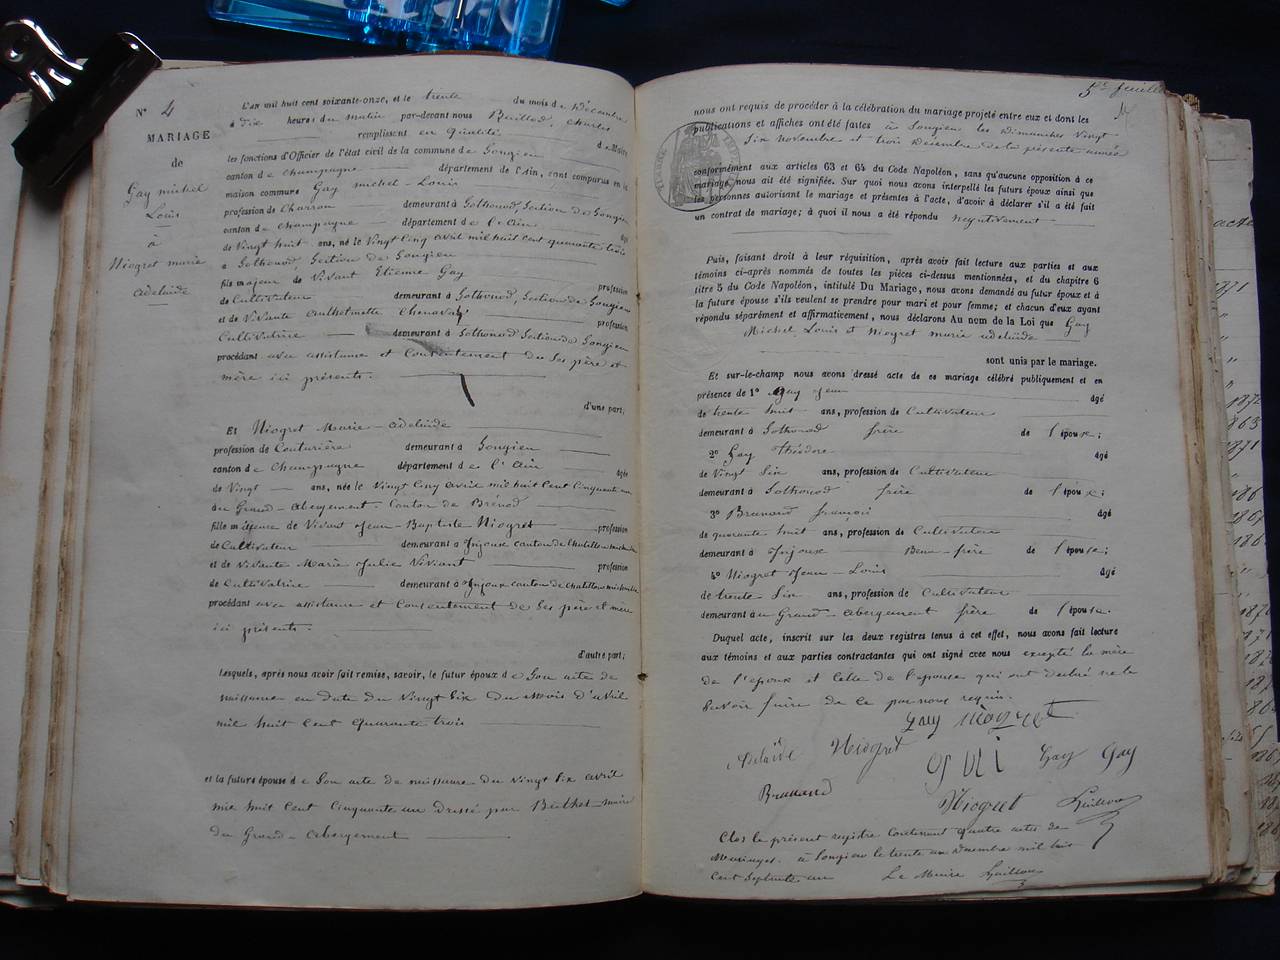 N° 4
MARIAGE
de
Gay michel
Louis
à
Niogret marie
adelaïde
L'an mil huit cent soixante-onze, et le trente du mois de Décembre
à dix heures du matin par-devant nous Charles
remplissant en qualité de Maire
les fonctions d'Officier de l'état civil de la commune de Songieu
canton de champagne département de l'Ain, sont comparus en la
maison commune Gay michel - Louis
profession de Charron demeurant à Sothonod, Section de Songieu
canton de champagne département de l'ain âgé
de Vingt huit ans, né le Vingt Cinq avril mil huit cent quarante trois
à Sothonod, Section de Songieu
fils majeur de Vivant Etienne Gay profession
de Cultivateur demeurant à Sothonod, Section de Songieu
et de Vivante profession
Cultivatrice demeurant à Sothonod Section de Songieu
procédant avec assistance et Consentement de Ses père et
mère ici présents.
d'une part;
Et Niogret Marie - adelaïde
profession de Couturière demeurant à Songieu
canton de Champagne département de l'ain âgée
de Vingt ans, née le Vingt Cinq avril mil huit Cent Cinquante un
au Grand - abergement - Canton de Brénod
fille mineure de Vivant Jean - Baptiste Niogret profession
de Cultivateur demeurant à Injoux canton de chatillon
et de Vivante Marie Julie Viviant profession
de Cultivatrice demeurant à Injoux canton de Chatillon
procédant avec assistance et Consentement de Ses père et mère
ici présents.
d'autre part;
Lesquels, après nous avoir fait remise, savoir, le futur époux de Son acte de
naissance en date du Vingt Six du Mois d'avril
mil huit Cent quarante trois
et la future épouse de Son acte de naissance du Vingt Six avril
mil huit Cent Cinquante un dressé par Berthet - maire
du Grand - abergement
5e feuille
nous ont requis de procéder à la célébration du mariage projeté entre eux et dont les
publications et affiches ont été faites à Songieu les Dimanches Vingt
Six Novembre et trois Décembre de la présente année
conformément aux articles 63 et 64 du Code Napoléon, sans qu'aucune opposition à ce
mariage nous ait été signifiée. Sur quoi nous avons interpellé les futurs époux ainsi que
les personnes autorisant le mariage et présentes à l'acte, d'avoir à déclarer s'il a été fait
un contrat de mariage; à quoi il nous a été répondu Négativement
Puis, faisant droit à leur réquisition, après avoir fait lecture aux parties et aux
témoins ci-après nommés de toutes les pièces ci-dessus mentionnées, et du chapitre 6
titre 5 du Code Napoléon, intitulé Du Mariage, nous avons demandé au futur époux et à
la future épouse s'ils veulent se prendre pour mari et pour femme; et chacun d'eux ayant
répondu séparément et affirmativement, nous déclarons Au nom de la Loi que Gay
Michel Louis et Niogret marie adelaïde
sont unis par le mariage.
Et sur-le-champ nous avons dressé acte de ce mariage célébré publiquement et en
présence de 1° Gay Jean âgé
de trente huit ans, profession de Cultivateur
demeurant à Sothonod frère de l'époux;
2° Gay Théodore âgé
de Vingt Six ans, profession de Cultivateur
demeurant à Sothonod frère de l'époux;
3° Brunand françois âgé
de quarante huit ans, profession de Cultivateur
demeurant à Injoux Beau - frère de l'épouse;
4° Niogret Jean - Louis âgé
de trente Six ans, profession de Cultivateur
demeurant au Grand - abergement frère de l'épouse.
Duquel acte, inscrit sur les deux registres tenus à cet effet, nous avons fait lecture
aux témoins et aux parties contractantes qui ont signé avec nous excepté la mère
de l'époux et Celle de l'épouse qui ont déclaré ne le
Savoir faire de Ce par nous requis.
Gay Niogret
Adelaïde Niogret Gay Gay
Brunand
Niogret
Clos le présent registre Contenant quatre actes de
Mariages. à Songieu le trente un Décembre mil huit
Cent Septante un Le Maire